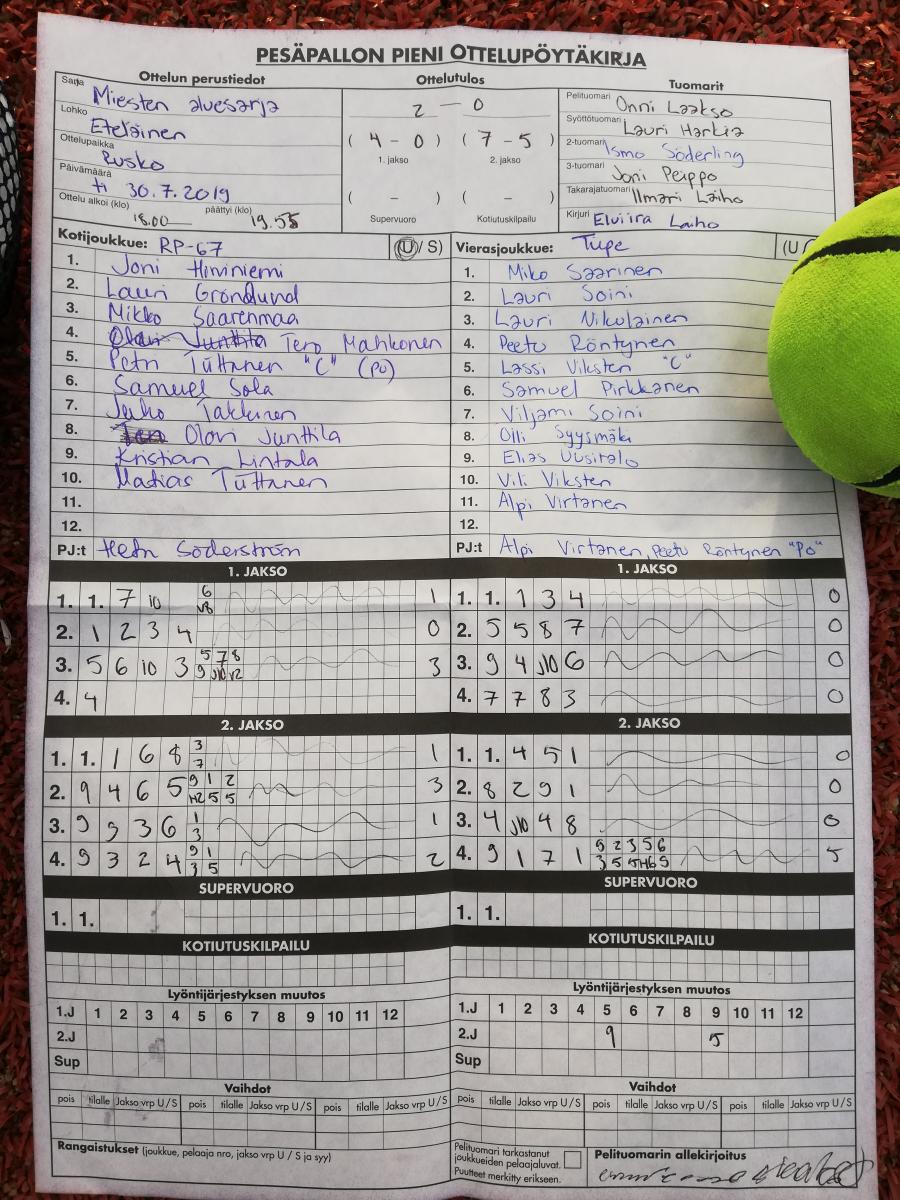 PESÄPALLON PIENI OTTELUPÖYTÄKIRJA
Ottelun perustiedot
Sarja Miesten aluesarja
Lohko Eteläinen
Ottelupaikka Rusko
Päivämäärä ti 30.7.2019
Ottelu alkoi (klo) 18.00 päättyi (klo) 19.55
Ottelutulos
2 – 0
( 4 – 0 ) ( 7 – 5 )
1. jakso 2. jakso
( – ) ( – )
Supervuoro Kotiutuskilpailu
Tuomarit
Pelituomari Onni Laakso
Syöttötuomari Lauri Harkia
2-tuomari Ismo Söderling
3-tuomari Joni Peippo
Takarajatuomari Ilmari Laiho
Kirjuri Elviira Laiho
Kotijoukkue: RP-67 (U/ S)
1. Joni Hiviniemi
2. Lauri Grönlund
3. Mikko Saarenmaa
4. Olavi Junttila Tero Mahkonen
5. Petri Tuttanen "C" (PO)
6. Samuel Sola
7. Juho Takkinen
8. Tero Olavi Junttila
9. Kristian Lintala
10. Matias Tuttanen
11.
12.
PJ:t Söderström
Vierasjoukkue: Tupe (U
1. Miko Saarinen
2. Lauri Soini
3. Lauri Nikulainen
4. Peetu Röntynen
5. Lassi Viksten "C"
6. Samuel Pirkkanen
7. Viljami Soini
8. Olli Syysmäki
9. Elias Uusitalo
10. Vili Viksten
11. Alpi Virtanen
12.
PJ:t Alpi Virtanen, Peetu Röntynen "PO"
1. JAKSO
1. 1. 7 10 6 1
V8
2. 1 2 3 4 0
3. 5 6 10 3 5 7 8 3
9 J10 V2
4. 4
2. JAKSO
1. 1. 1 6 8 3 1
7
2. 9 4 6 5 9 1 2 3
H2 5 5
3. 9 9 3 6 1 1
3
4. 9 3 2 4 9 1 2
3 5
SUPERVUORO
1. 1.
KOTIUTUSKILPAILU
Lyöntijärjestyksen muutos
1.J 1 2 3 4 5 6 7 8 9 10 11 12
2.J
Sup
Vaihdot
pois tilalle Jakso vrp U/S pois tilalle Jakso vrp U/S pois tilalle Jakso vrp U/S
Rangaistukset (joukkue, pelaaja nro, jakso vrp U / S ja syy)
1. JAKSO
1. 1. 1 3 4 0
2. 5 5 8 7 0
3. 9 4 J10 6 0
4. 7 7 8 3 0
2. JAKSO
1. 1. 4 5 1 0
2. 8 2 9 1 0
3. 4 J10 4 8 0
4. 9 1 7 1 9 2 3 5 6 5
3 5 5 H6 9
SUPERVUORO
1. 1.
KOTIUTUSKILPAILU
Lyöntijärjestyksen muutos
1.J 1 2 3 4 5 6 7 8 9 10 11 12
2.J 9 5
Sup
Vaihdot
pois tilalle Jakso vrp U/S pois tilalle Jakso vrp U/S pois tilalle Jakso vrp U/S
Pelituomari tarkastanut
joukkueiden pelaajaluvat.
Puutteet merkitty erikseen.
Pelituomarin allekirjoitus